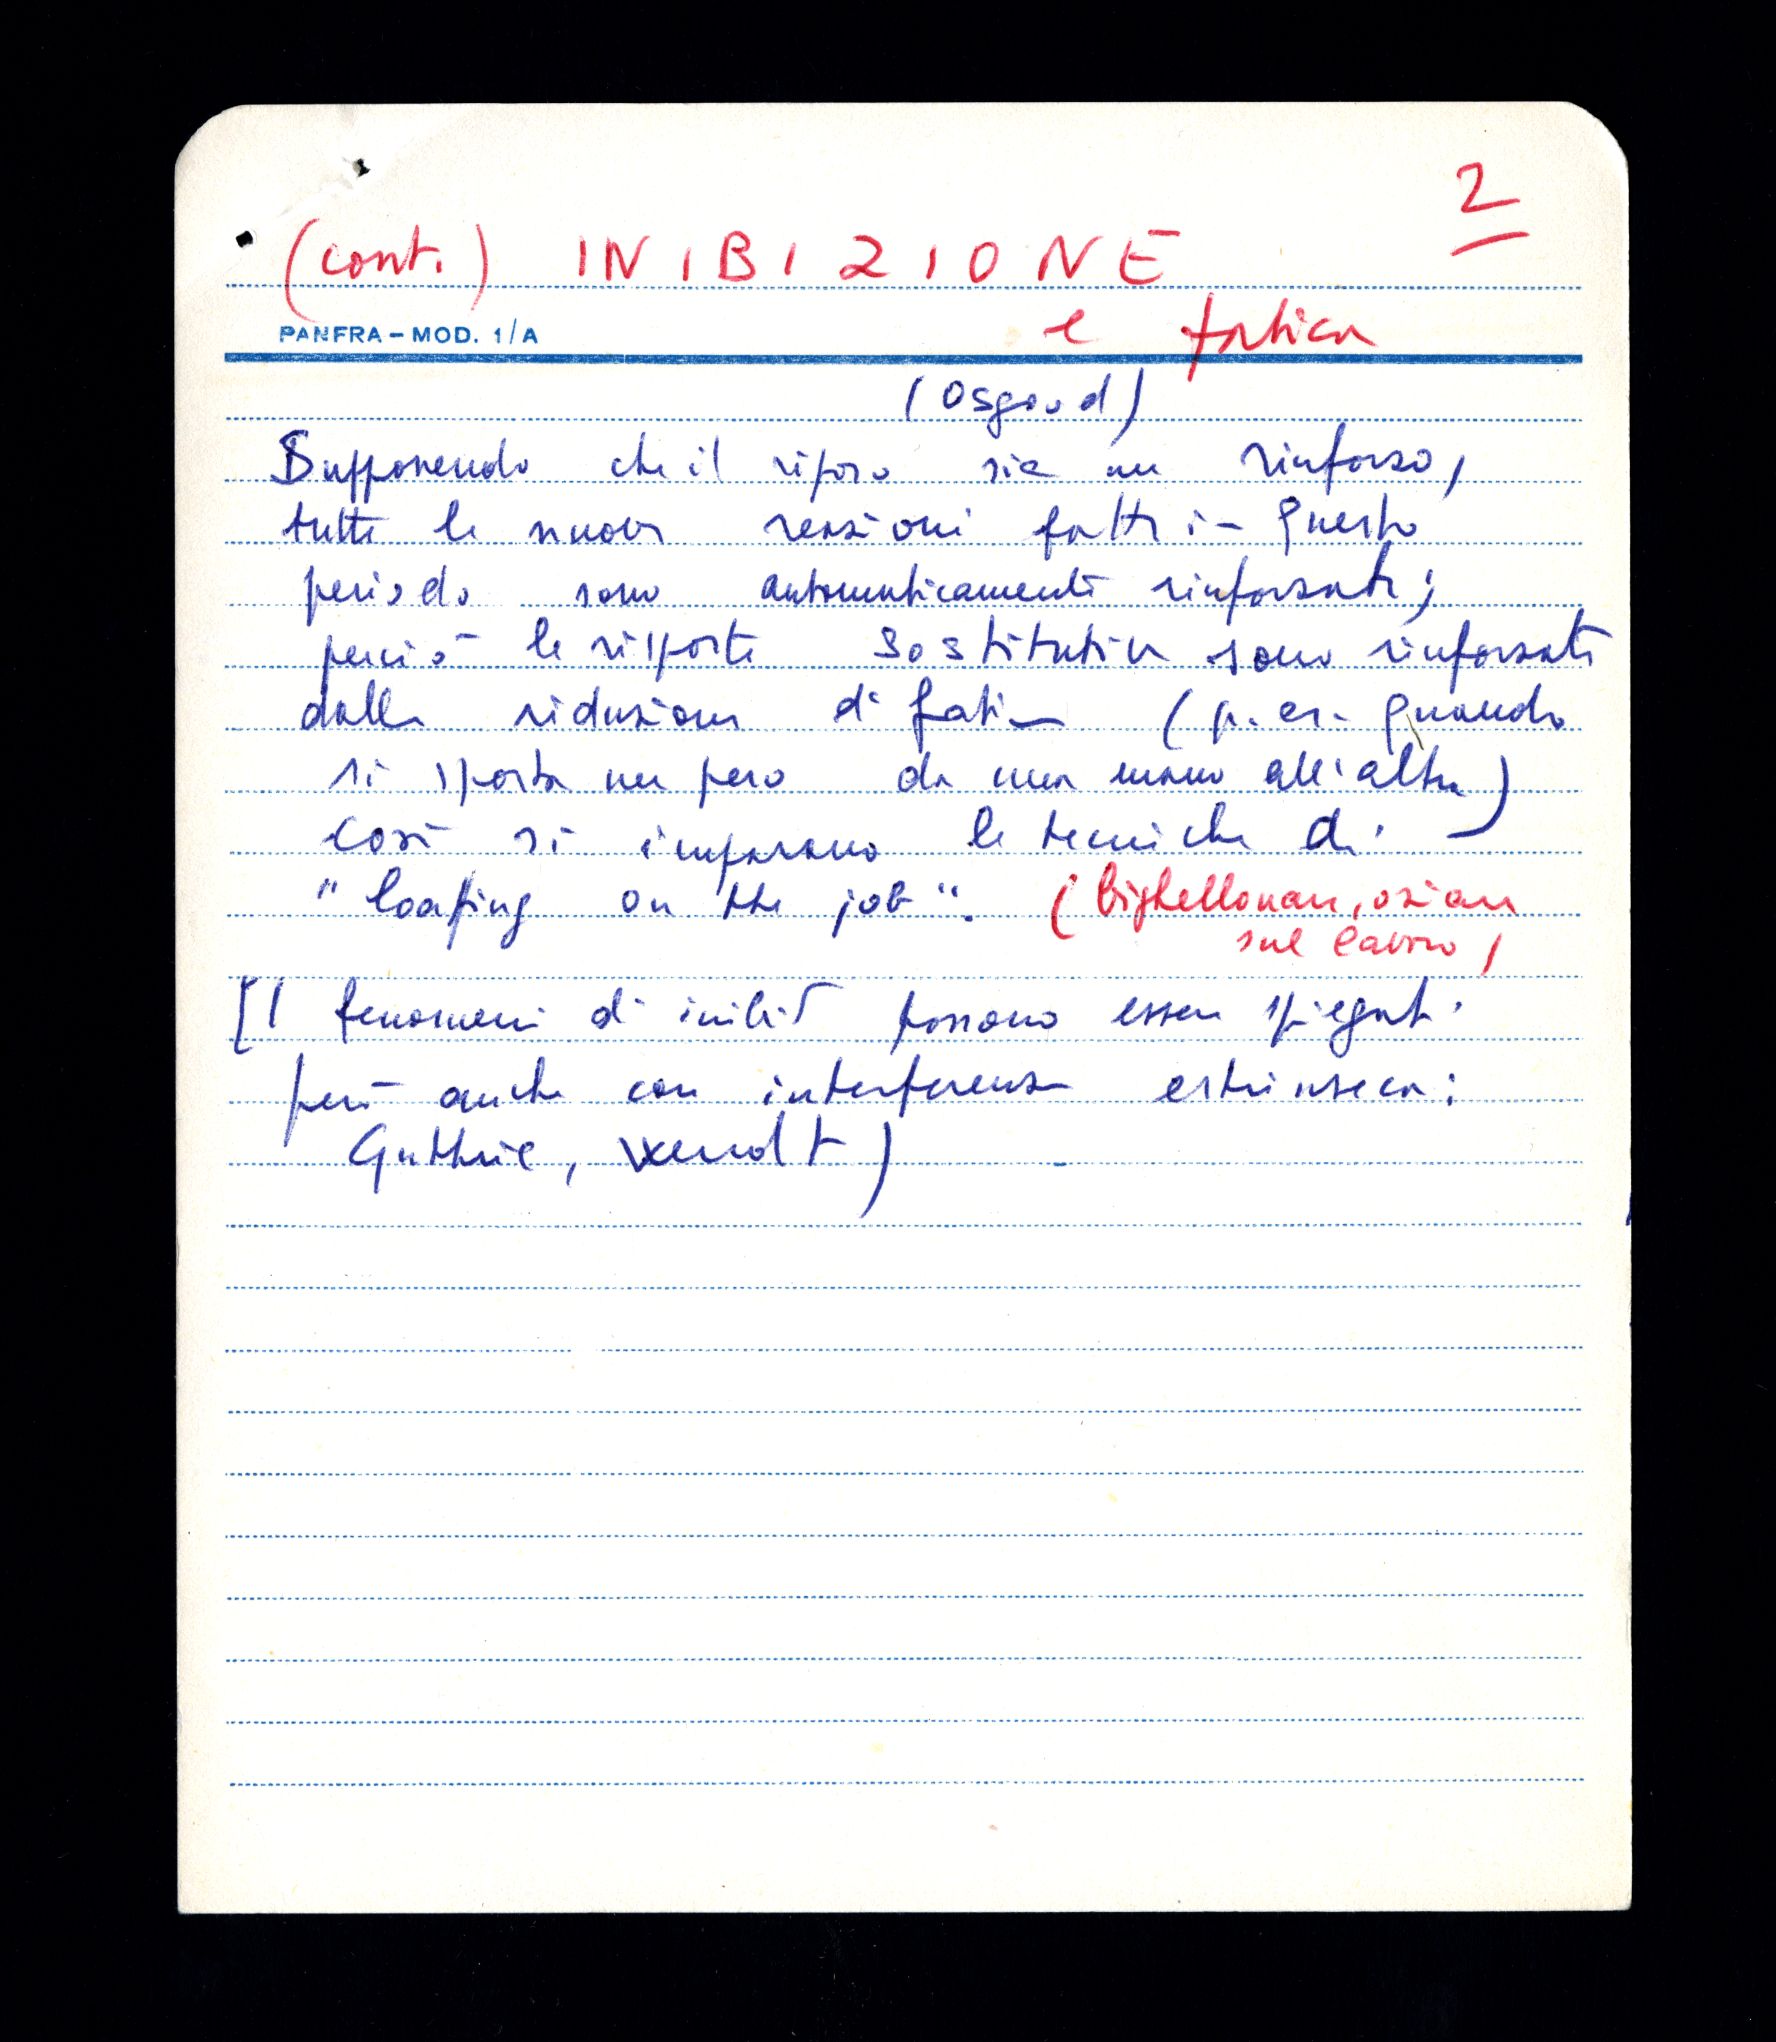 2
(cont.) INIBIZIONE
e fatica
PANFRA - MOD. 1/A
(Osgood)
Supponendo che il riposo sia un rinforzo,
tutte le nuove reazioni fatte in questo
periodo sono automaticamente rinforzate;
perciò le risposte sostitutive sono rinforzate
dalla riduzione di fatica (p. es. quando
si sposta un peso da una mano all'altra)
così si imparano le tecniche di
"loafing on the job". (bighellonare, oziare
sul lavoro)
[I fenomeni di inibiz possono essere spiegati
però anche con interferenza estrinseca:
Guthrie, Wendt)